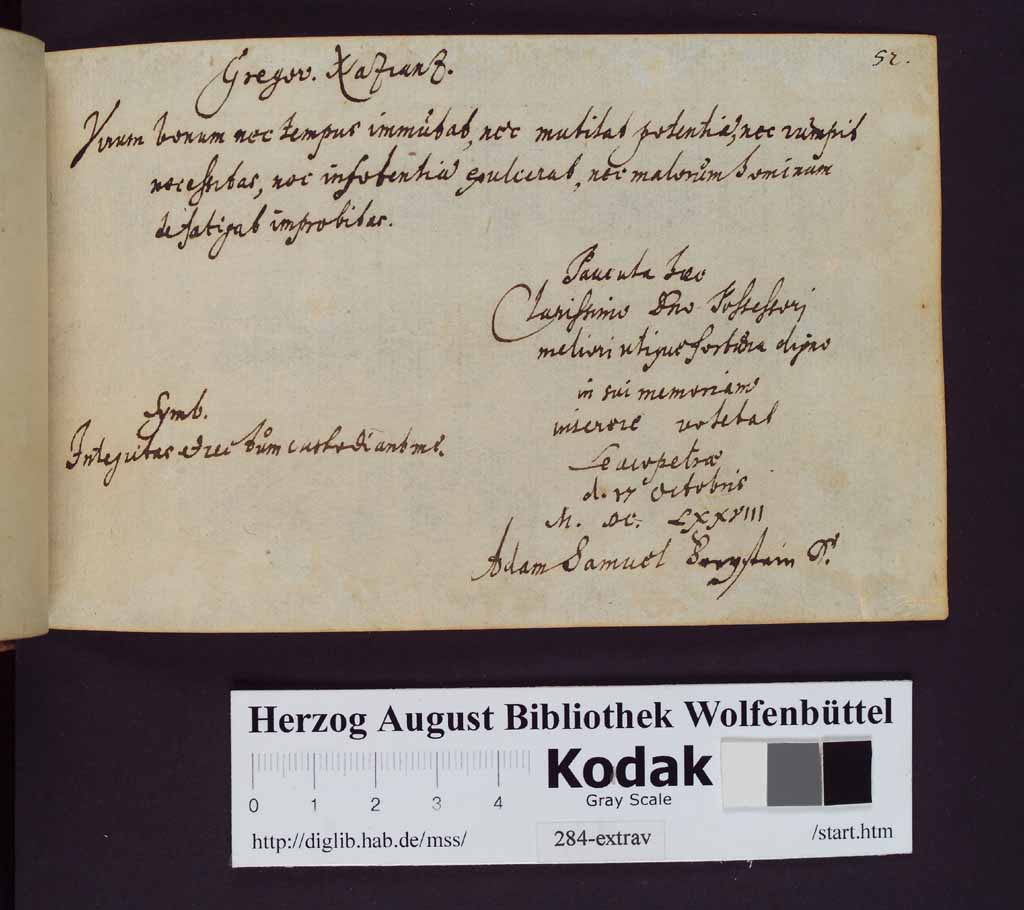 52.
Gregor. Nazianz.
Virum bonum nec tempus immutat, nec mutilat potentia, nec rumpit
necessitas, nec insolentia exulcerat, nec malorum hominum
defatigat improbitas.
Paucula haec
Clarissimo Dno Possessori
meliori utique fortuna digno
in sui memoriam
inserere volebat
Leucopetrae
d. 17 Octobris
M. DC. LXXVIII
Adam Samuel
Symb.
Integritas et rectum custodiant me.
Herzog August Bibliothek Wolfenbüttel
0 1 2 3 4
Kodak
Gray Scale
http://diglib.hab.de/mss/
284-extrav
/start.htm